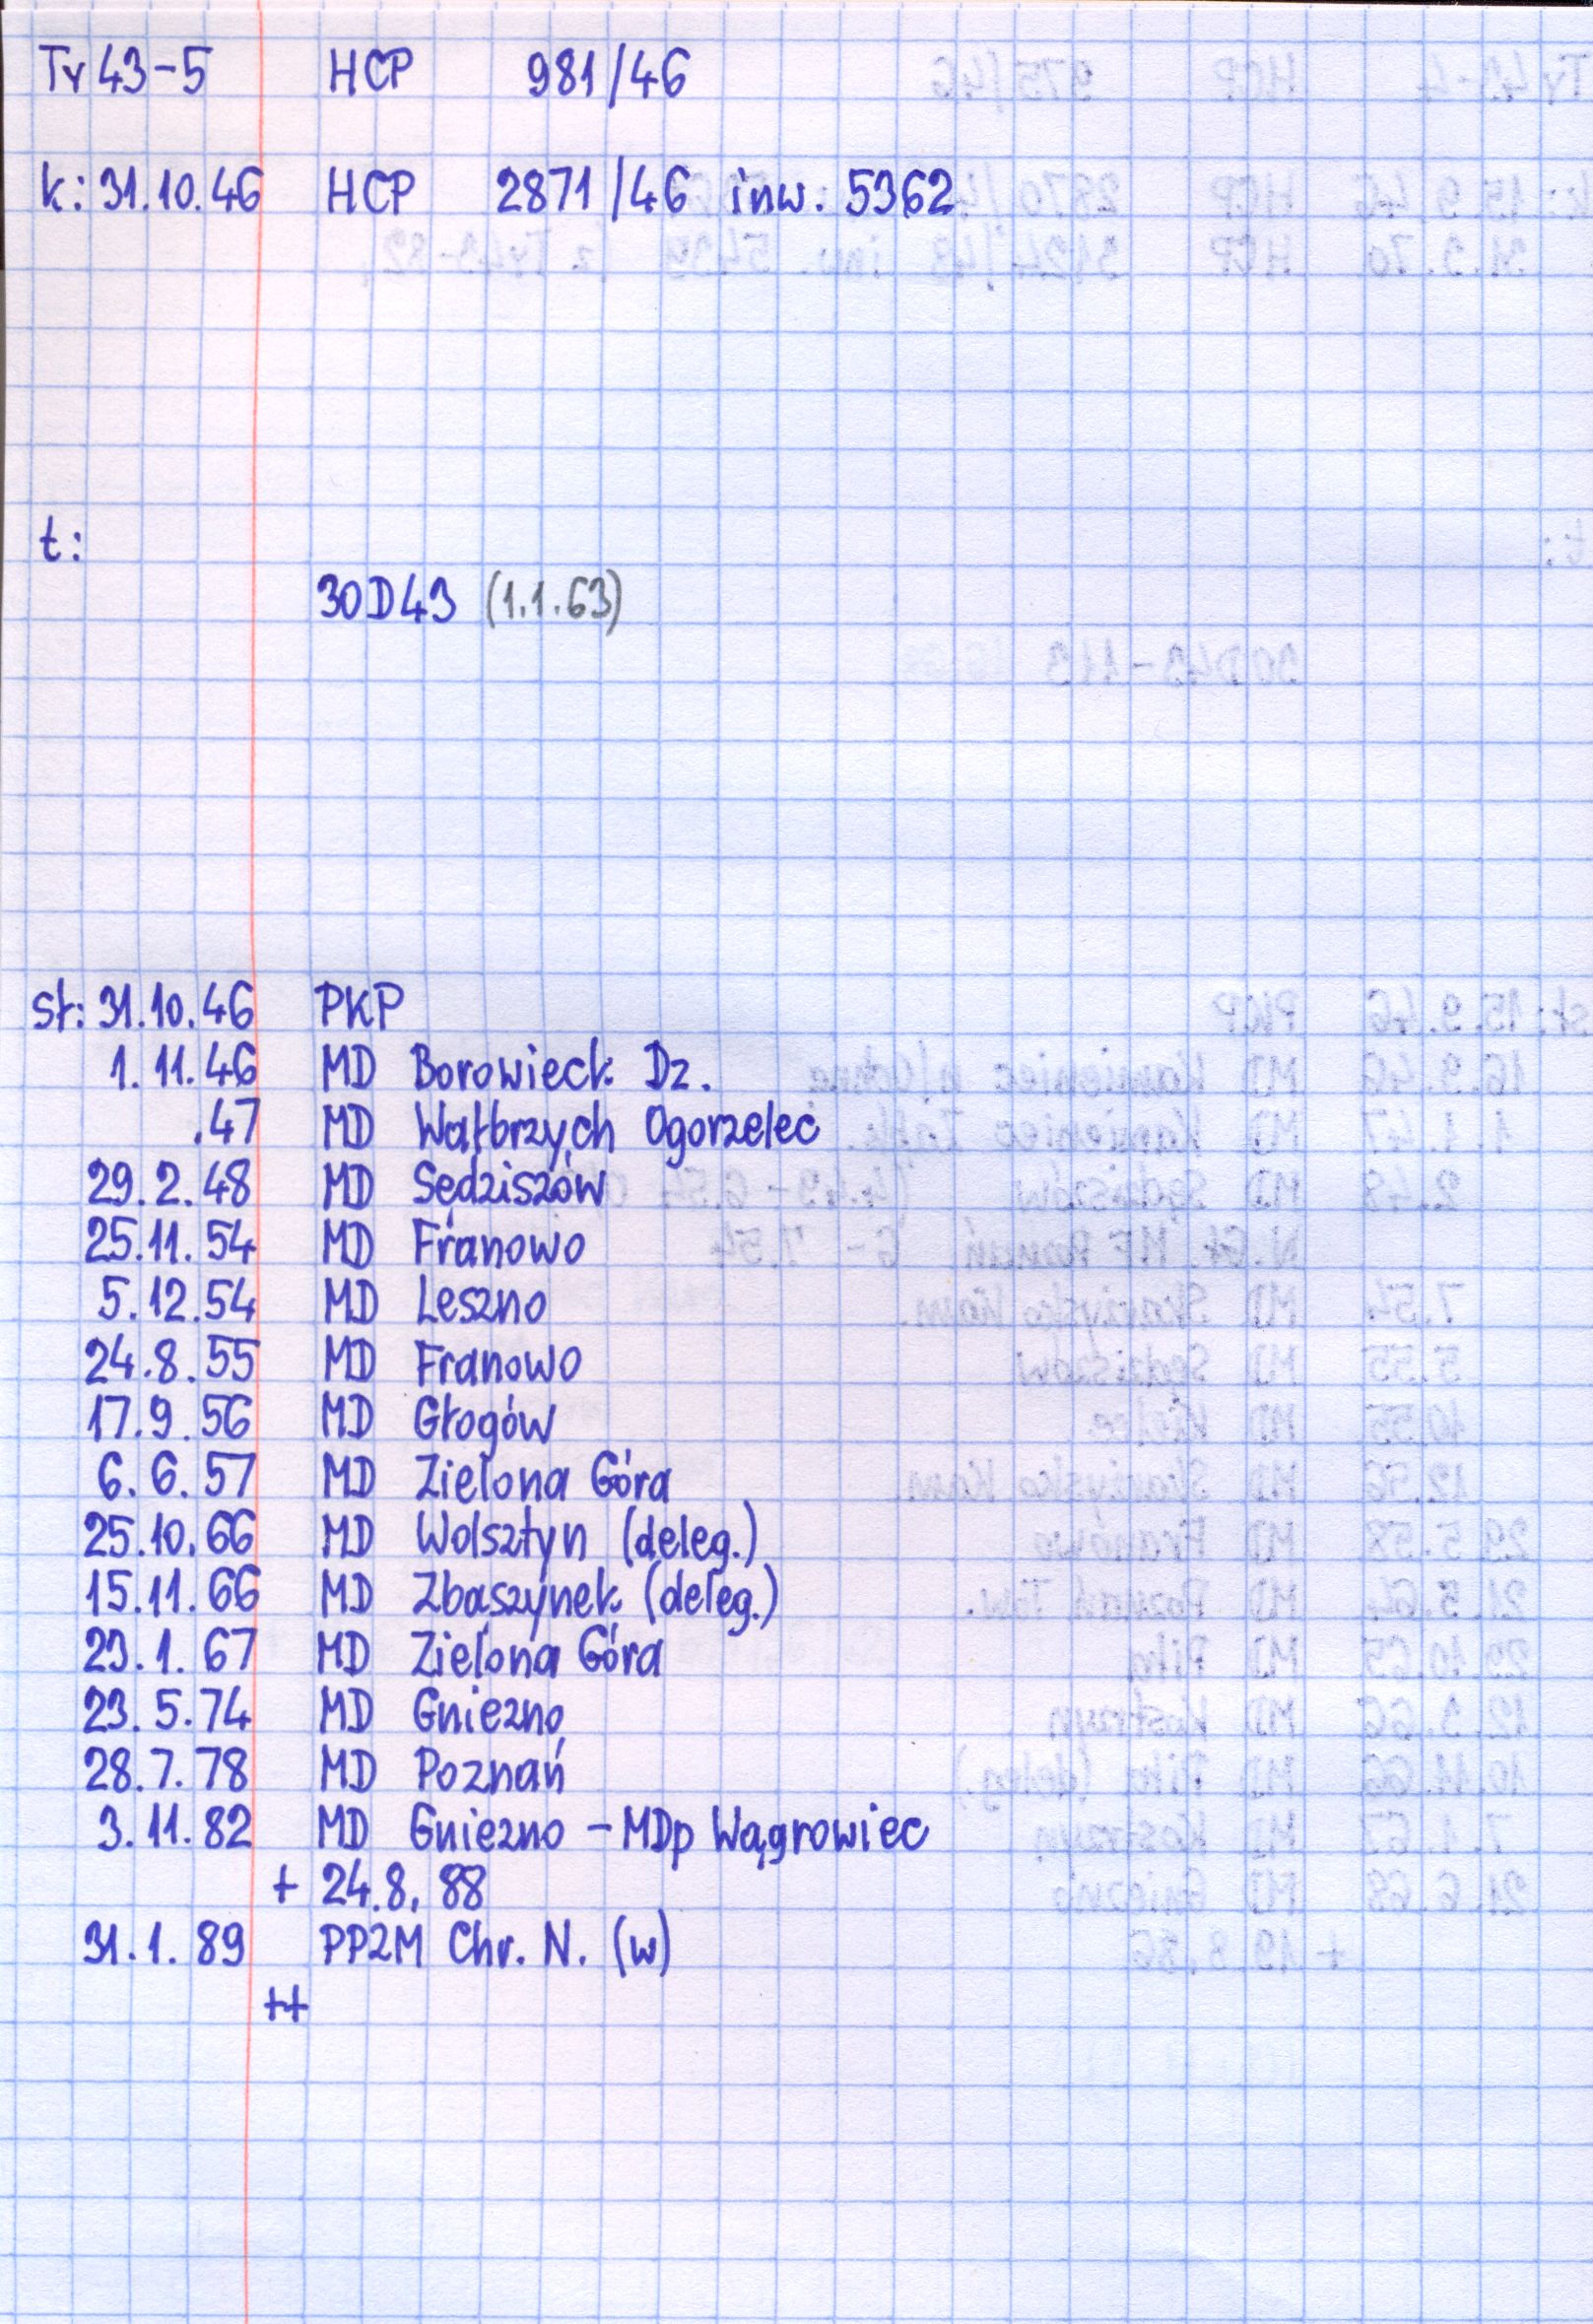 Ty43-5 HCP 981/46
k: 31.10.46 HCP 2871/46 inw. 5362
t:
30D43 (1.1.63)
st: 31.10.46 PKP
1.11.46 MD Borowieck Dz.
.47 MD Wałbrzych Ogorzelec
29.2.48 MD Sędziszów
25.11.54 MD Franowo
5.12.54 MD Leszno
24.8.55 MD Franowo
17.9.56 MD Głogów
6.6.57 MD Zielona Góra
25.10.66 MD Wolsztyn (deleg.)
15.11.66 MD Zbąszynek (deleg.)
23.1.67 MD Zielona Góra
23.5.74 MD Gniezno
28.7.78 MD Poznań
3.11.82 MD Gniezno - MDp Wągrowiec
+ 24.8.88
31.1.89 PPZM Chr. N. (w)
++